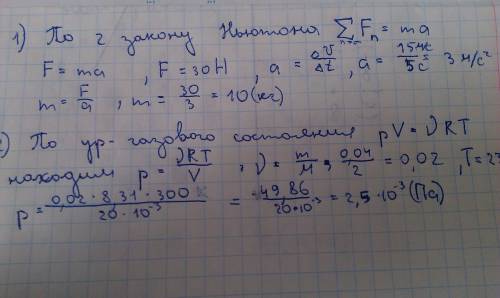 1) По 2 закону Ньютона ∑Fₙ = ma
F = ma , F = 30H , a = ΔV/Δt , a = 15 м/с / 5c = 3 м/с²
m = F/a , m = 30/3 = 10(кг)
По ур- газового состояния pV = νRT
находим p = νRT/V , ν = m/M = 0,04/2 = 0,02 , T=2
p = 0,02 · 8,31 · 300 / 20 · 10⁻³ = 49,86 / 20 · 10⁻³ = 2,5 · 10⁻³ (Па)